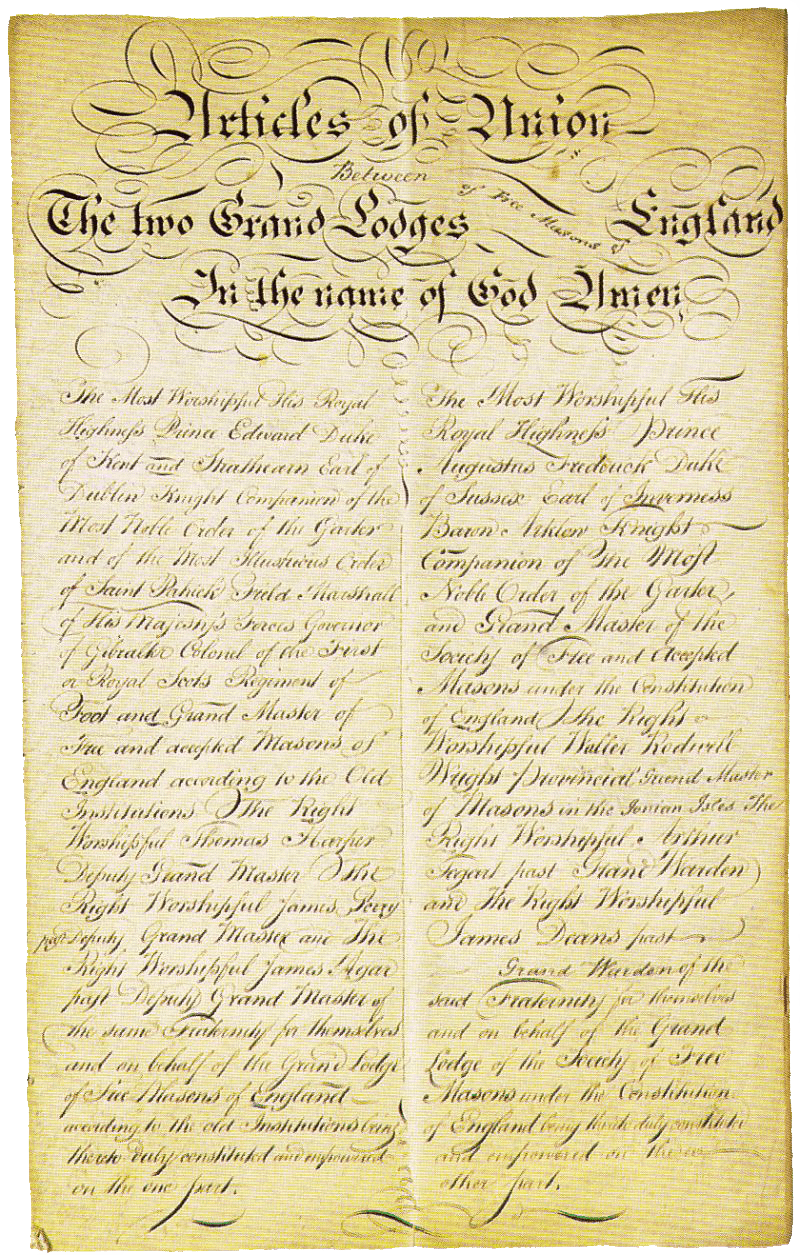 Articles of Union
Between
The two Grand Lodges of Free Masons of England
In the name of God Amen
The Most Worshipful His Royal
Highness Prince Edward Duke
of Kent and Strathearn Earl of
Dublin Knight Companion of the
Most Noble Order of the Garter
and of the Most Illustrious Order
of Saint Patrick Field Marshall
of His Majesty's Forces Governor
of Gibralter Colonel of the First
or Royal Scots Regiment of
Foot and Grand Master of
Free and accepted Masons of
England according to the Old
Institutions The Right
Worshipful Thomas Harper
Deputy Grand Master The
Right Worshipful James Perry
past Deputy Grand Master and The
Right Worshipful James Agar
past Deputy Grand Master of
the same Fraternity for themselves
and on behalf of the Grand Lodge
of Free Masons of England
according to the old Institutions being
thereto duly constituted and empowered
on the one part.
The Most Worshipful His
Royal Highness Prince
Augustus Frederick Duke
of Sussex Earl of Inverness
Baron Arklow Knight
Companion of The Most
Noble Order of the Garter,
and Grand Master of the
Society of Free and Accepted
Masons under the Constitution
of England The Right
Worshipful Waller Rodwell
Wright Provincial Grand Master
of Masons in the Ionian Isles The
Right Worshipful Arthur
Tegart past Grand Warden
and The Right Worshipful
James Deans past
Grand Warden of the
said Fraternity for themselves
and on behalf of the Grand
Lodge of the Society of Free
Masons under the Constitution
of England being thereto duly constituted
and empowered on the
other part.